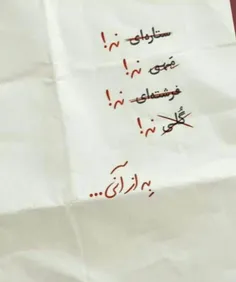 ستاره‌ای نه!
مهی نه!
فرشته‌ای نه!
گُلی نه!
به از آنی...